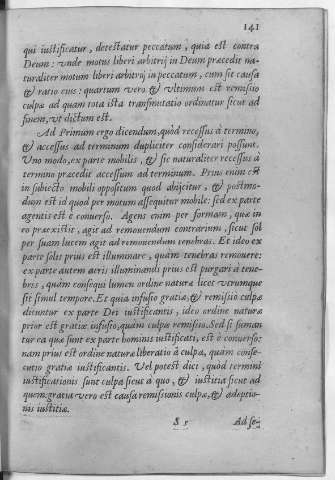 141
qui iustificatur, detestatur peccatum, quia est contra
Deum: vnde motus liberi arbitrij in Deum præcedit na-
turaliter motum liberi arbitrij in peccatum, cum sit causa
& ratio eius: quartum vero & vltimum est remissio
culpæ ad quam tota ista transmutatio ordinatur sicut ad
finem, vt dictum est.
Ad Primum ergo dicendum, quòd recessus à termino,
& accessus ad terminum dupliciter considerari possunt.
Vno modo, ex parte mobilis, & sic naturaliter recessus à
termino præcedit accessum ad terminum. Prius enim est
in subiecto mobili oppositum quod abijcitur, & postmo-
dum est id quod per motum assequitur mobile: sed ex parte
agentis est è conuerso. Agens enim per formam, quæ in
eo præexistit, agit ad remouendum contrarium, sicut sol
per suam lucem agit ad remouendum tenebras. Et ideo ex
parte solis prius est illuminare, quam tenebras remouere:
ex parte autem aeris illuminandi prius est purgari à tene-
bris, quàm consequi lumen ordine naturæ licet vtrumque
sit simul tempore. Et quia infusio gratiæ, & remissio culpæ
dicuntur ex parte Dei iustificantis, ideo ordine naturæ
prior est gratiæ infusio, quàm culpæ remissio. Sed si suman
tur ea quæ sunt ex parte hominis iustificati, est è conuerso:
nam prius est ordine naturæ liberatio à culpa, quam conse-
cutio gratiæ iustificantis. Vel potest dici, quòd termini
iustificationis sunt culpa sicut à quo, & iustitia sicut ad
quem: gratia vero est causa remissionis culpæ, & adeptio-
nis iustitiæ.
S 5 Ad se-